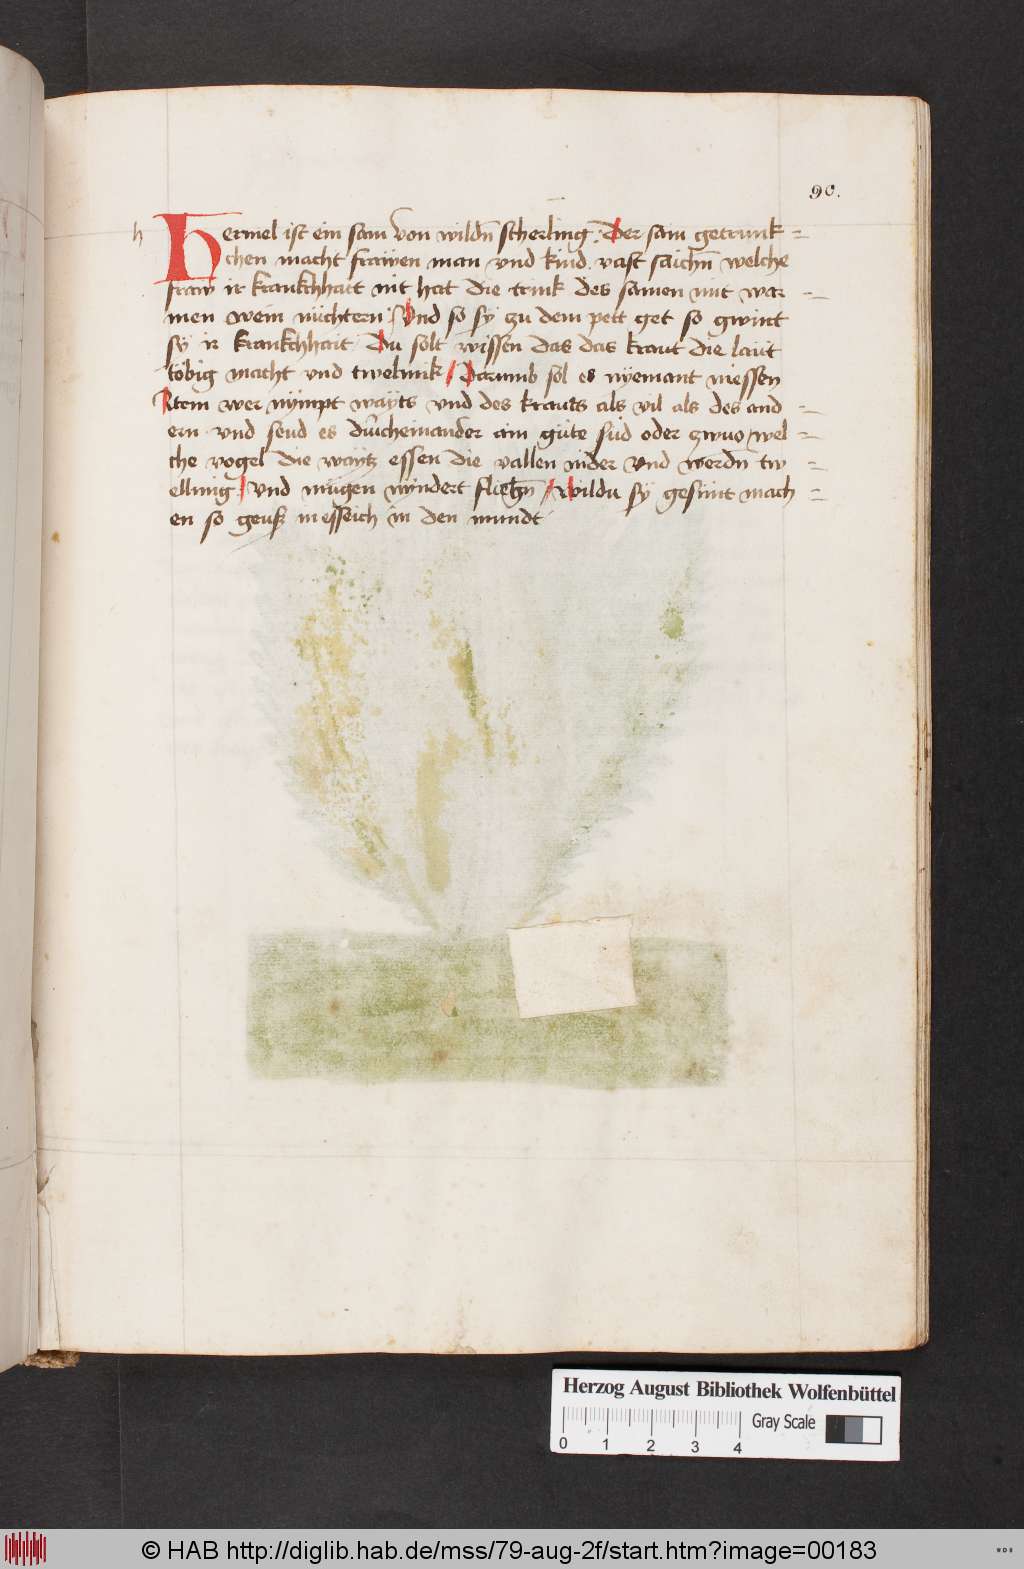 90.
h
Hermel ist ein sam von wildn̄ scherling. Der sam getrunk=
chen macht frawen man vnd kind vast saichn̄ welche
fraw ir krankchhait nit hat die trink des samen mit war=
men wein nüchtern. Vnd so sy zu dem pett get so gwint
sy ir krankchhait. Du solt wissen das das kraut die laüt
töbig macht vnd twelmik / Darumb sol es nyemant niessen
Item wer nympt wayts vnd des krauts als vil als des and=
ern vnd seud es durcheinander ain güte sud oder zwuo / wel=
che vogel die waytz essen die vallen nider vnd werdn tw=
ellmig / vnd mügen nyndert fliegn̄ / Wildu sy gesunt mach=
en so geuß in esseich in den mundt
Herzog August Bibliothek Wolfenbüttel
Gray Scale
0 1 2 3 4
© HAB http://diglib.hab.de/mss/79-aug-2f/start.htm?image=00183